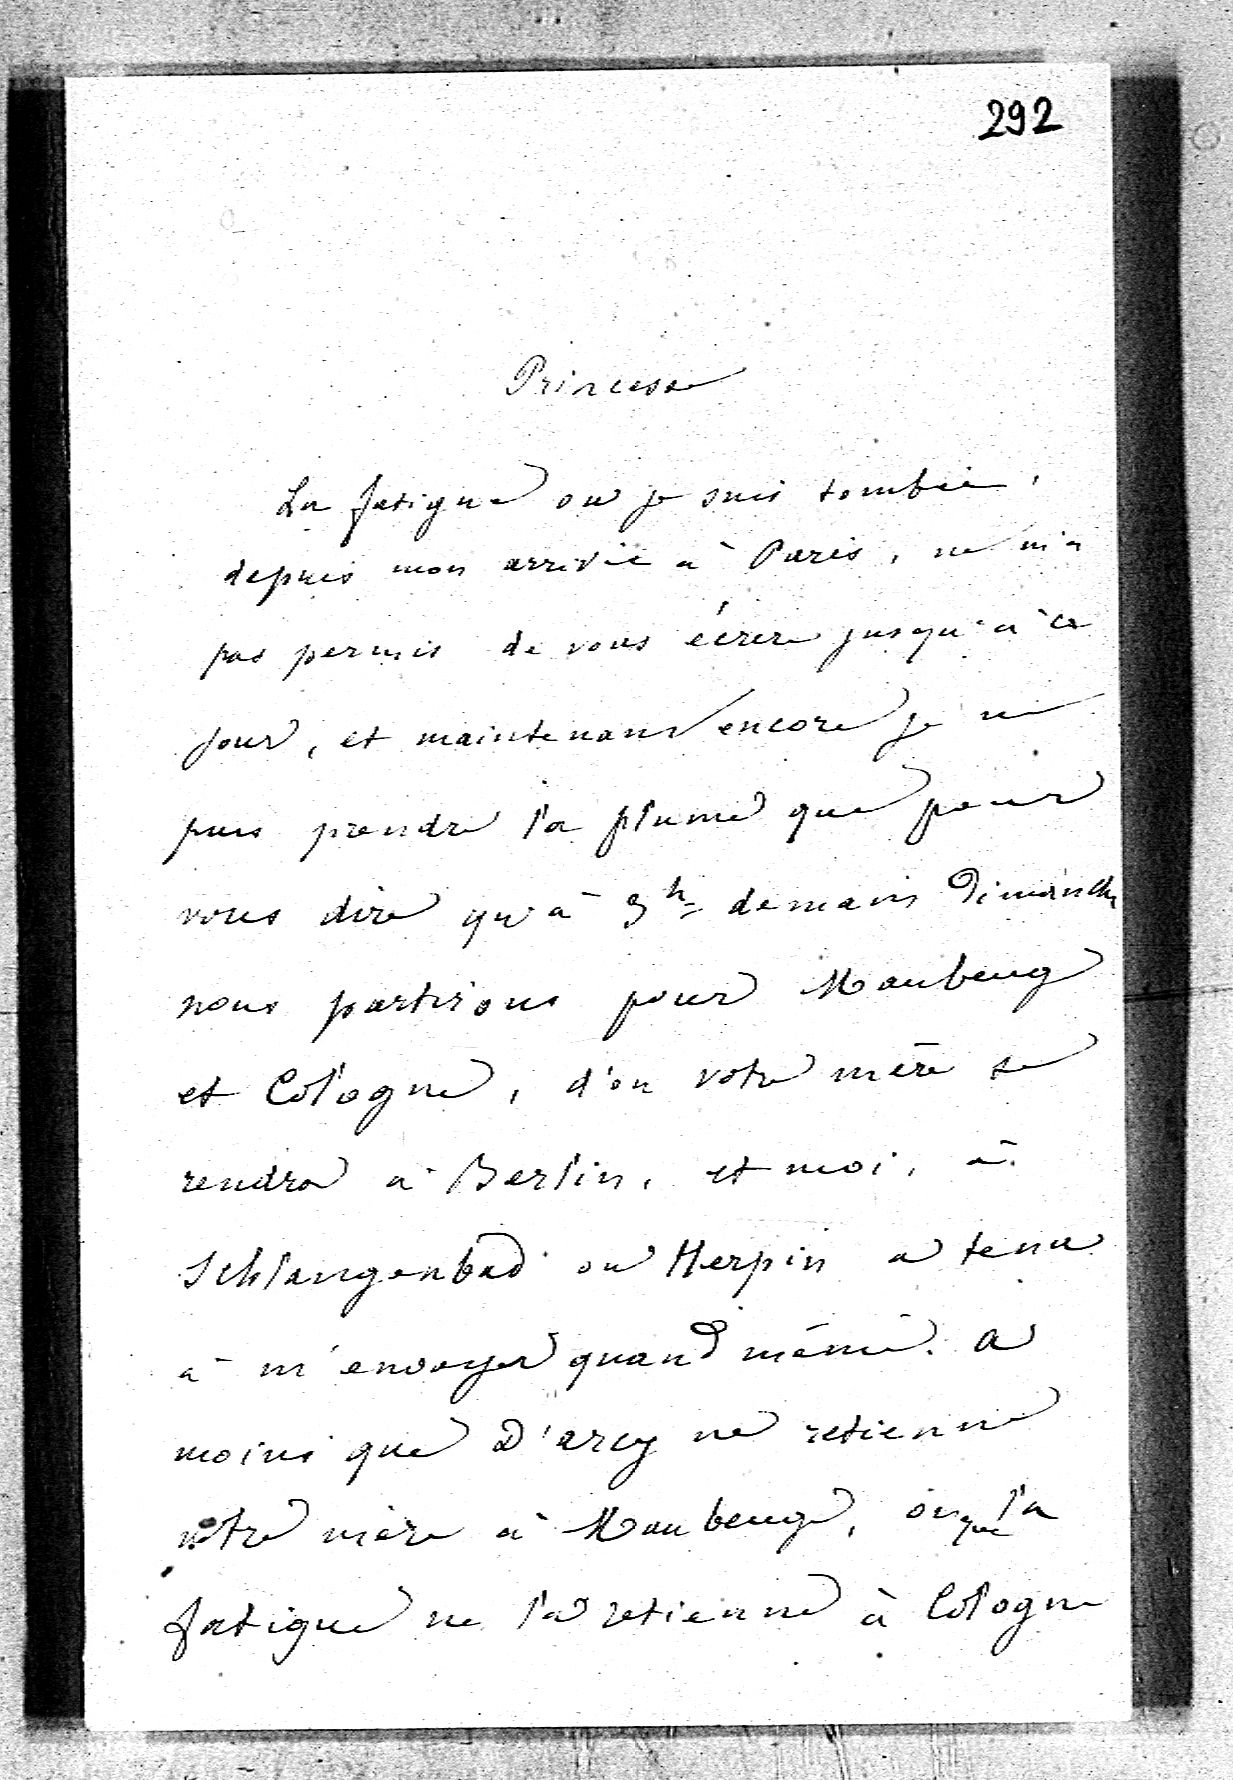 292
Princesse
La fatigue où je suis tombée,
depuis mon arrivée à Paris, ne m'a
pas permis de vous écrire jusqu'à ce
jour, et maintenant encore je ne
puis prendre la plume que pour
vous dire qu'à 3h demain Dimanche
nous partirons pour Maubeug
et Cologne, d'ou votre mère se
rendra à Berlin, et moi, à
Schlangenbad ou Herpin a tenu
à m'envoyer quand même. A
moins que D'arcy ne retienne
votre mère à Maubeuge, ou que la
fatigue ne la retienne à Cologne